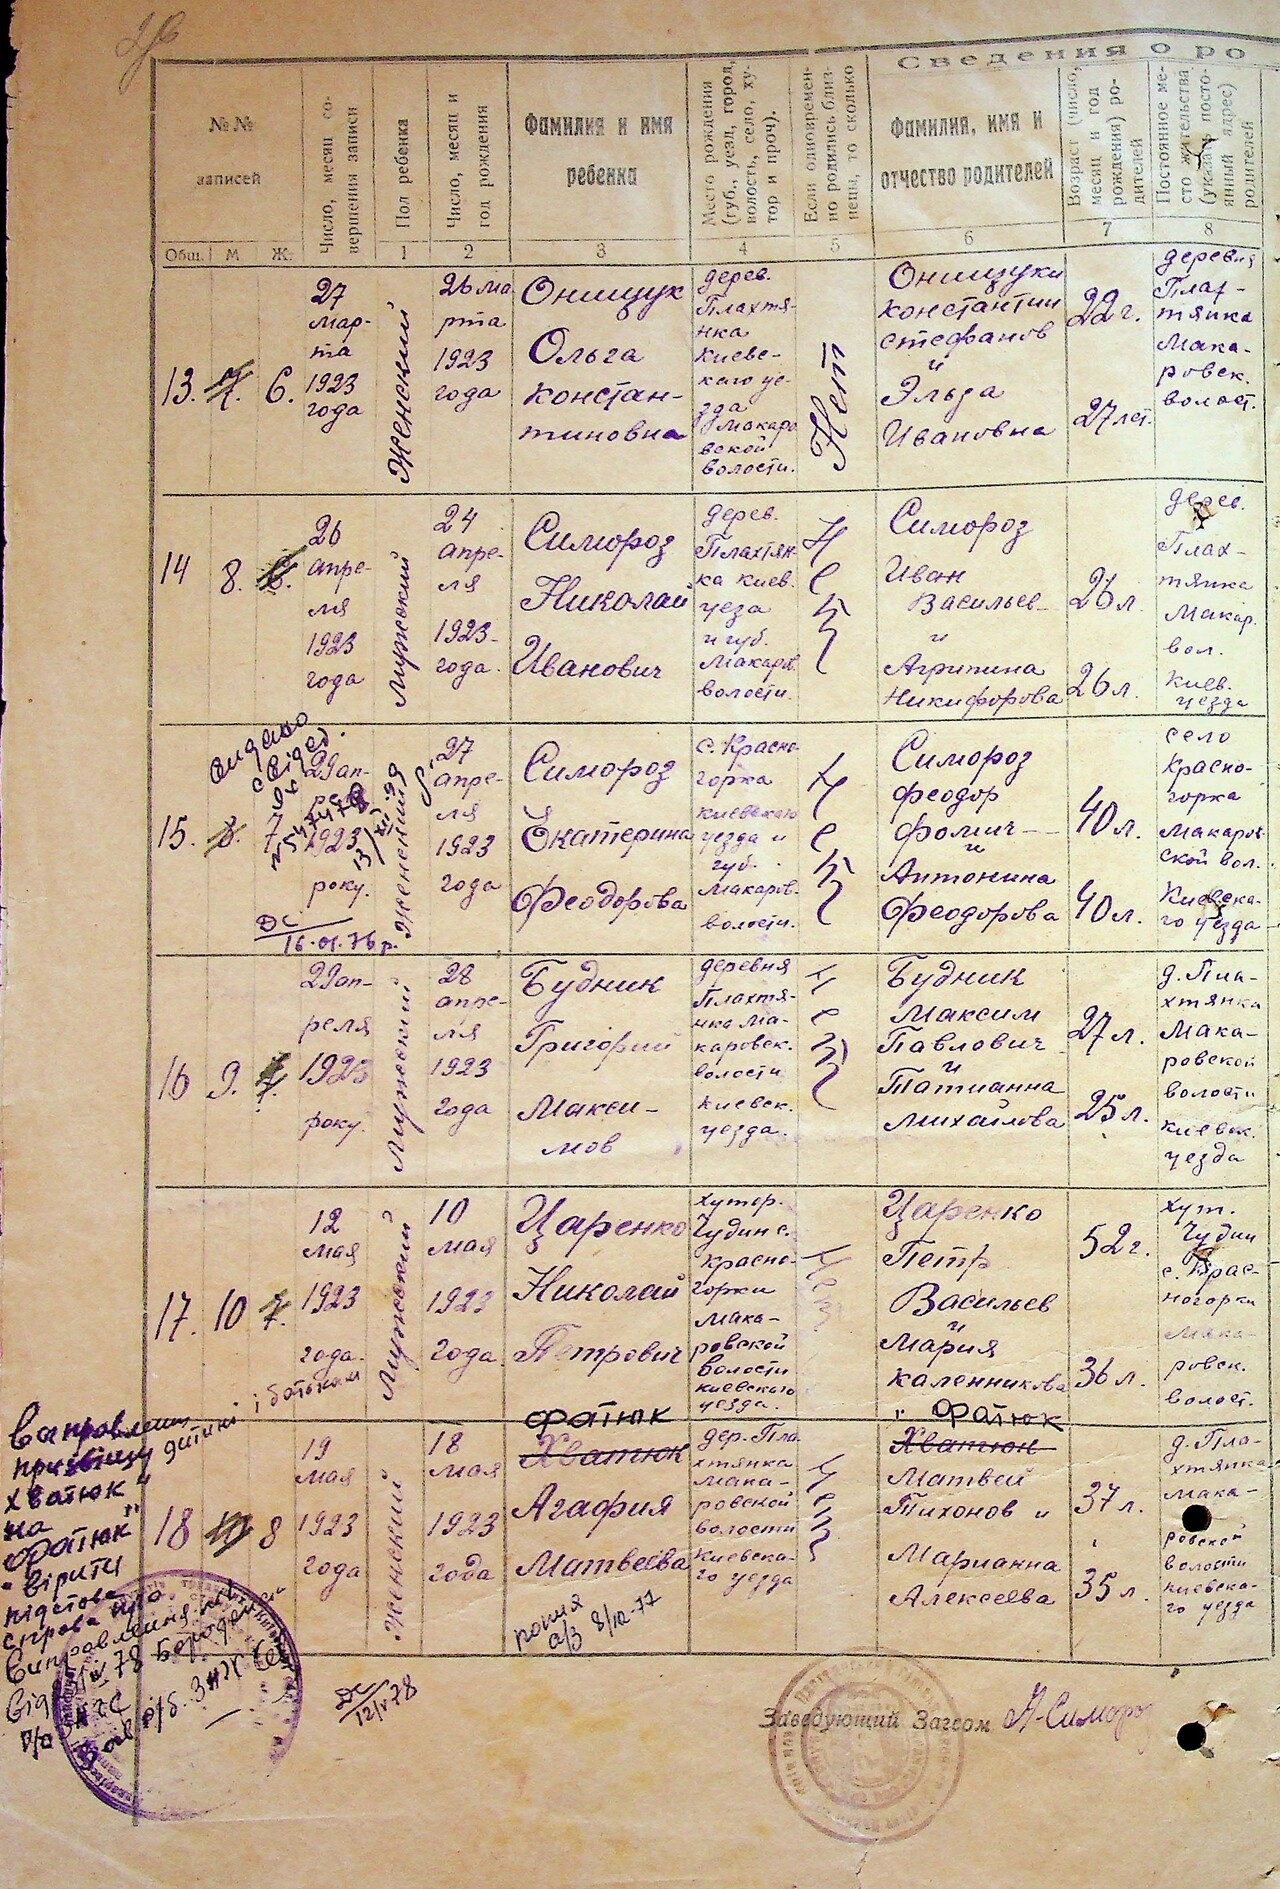 Сведения о ро
№№ записей
Число, месяц со-
вершения записи
Пол ребенка
Число, месяц и
год рождения
Фамилия и имя
ребенка
Место рождения
(губ., уезд, город,
волость, село, ху-
тор и проч).
Если одновремен-
но родились близ-
нецы, то сколько
Фамилия, имя и
отчество родителей
Возраст (число,
месяц и год
рождения) ро-
дителей
Постоянное ме-
сто жительства
(указать посто-
янный адрес)
родителей
Общ. М Ж. 1 2 3 4 5 6 7 8
13. 7. 6.
27
мар-
та
1923
года
Женский
26 ма
рта
1923
года
Онищук
Ольга
констан-
тиновна
дерев.
Плахтя-
нка
киевс-
каго уе-
зда
Макаро
вской
волости.
Нет
Онищуки
константин
стефанов
и
Эльза
Ивановна
22 г.
27 лет.
деревня
Плах-
тянка
Мака-
ровск.
волост.
14 8. 6.
26
апре-
ля
1923
года
Мужский
24
апре-
ля
1923-
года.
Симороз
Николай
Иванович
дерев.
Плахтян-
ка киев.
уеза
и губ.
Макаров.
волости.
Нет
Симороз
Иван
Васильев-
и
Агрипина
Никифорова
26 л.
26 л.
дерев.
Плах-
тянка
Макар.
вол.
киев.
уезда
15. 8. 7
видано
свідед.
29 ап-
реля
1923
року.
ДС
16.01.76 р.
Женский
27
апре-
ля
1923
года
Симороз
Екатерина
Феодорова
с. Красно-
горка
киевскаго
уезда и
губ.
Макаров.
волости.
Нет
Симороз
феодор
фомич--
и
Антонина
Феодорова
40 л.
40 л.
село
красно-
горка
Макаров-
ской вол.
Киевска-
го уезда
16 9. 7.
29 ап-
реля
1923
року.
Мужский
28
апре-
ля
1923
года
Будник
Григорий
Макси-
мов
деревня
Плахтя-
нка Ма-
каровск.
волости
киевск.
уезда.
Нет
Будник
Максим
Павлович
и
Татианна
Михайлова
27 л.
25 л.
д. Пла-
хтянка
Мака-
ровской
волости
киевск.
уезда
17. 10 7.
12
мая
1923
года.
Мужский
10
мая
1923
года
Царенко
Николай
Петрович
хутор.
Чудин с.
красно-
горки
мака-
ровской
волости
киевского
уезда.
Нет
Царенко
Петр
Васильев
и
Мария
каленникова
52 г.
36 л.
хут.
Чудин
с. Крас-
ногорки
мака-
ровск.
волост.
Виправлення
прізвища дитині і батькам
"Хватюк"
на
"Фатюк"
вірити
підстова
справа про
Виправлення
18 10 8
19
мая
1923
года
Женский
18
мая
1923
года
Фатюк
Хватюк
Агафия
Матвеева
8/XII-77
дер. Пла
хтянка
мака-
ровской
волости
киевска-
го уезда
Нет
" Фатюк
Хватюк
Матвей
Тихонов и
Марианна
Алексеева
37 л.
35 л.
д. Пла-
хтянка
мака-
ровской
волости
киевска-
го уезда
ДС
12/V-78
Заведующий Загсом Н-Симороз